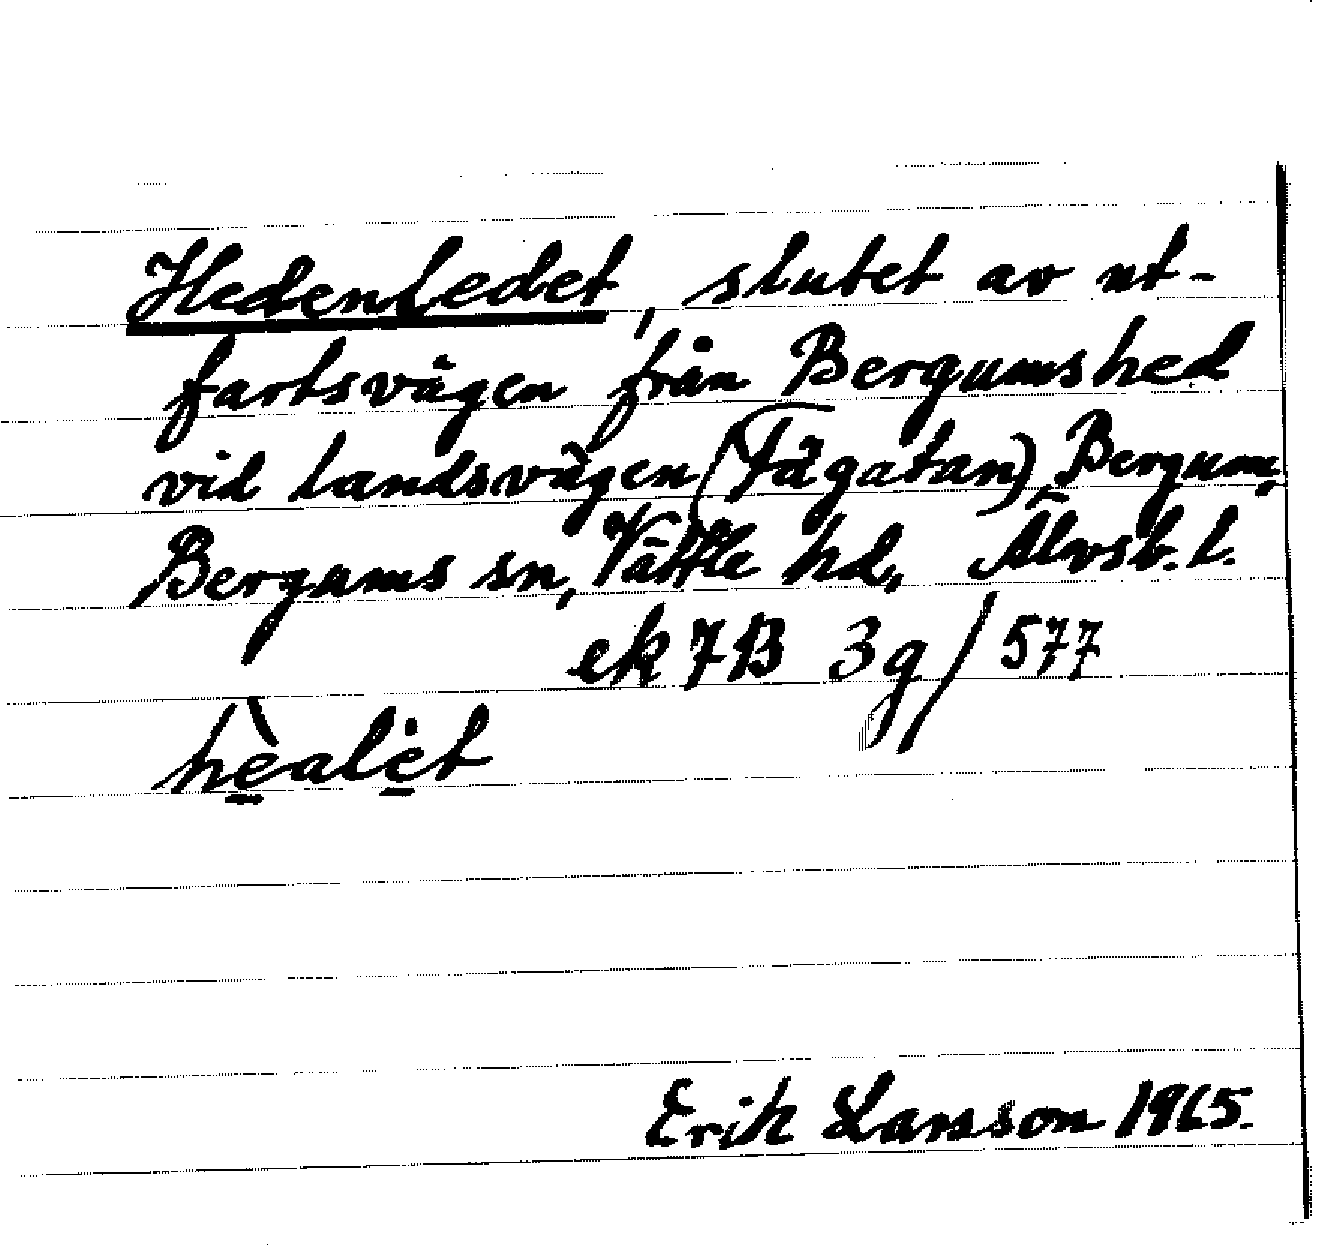 Hedenledet, slutet av ut-
fartsvägen från Bergumshed
vid landsvägen (Fägatan), Bergum,
Bergums sn, Vättle hd, Älvsb. l.
ek 7B 3g/577
hèalėt
Erik Larsson 1965.